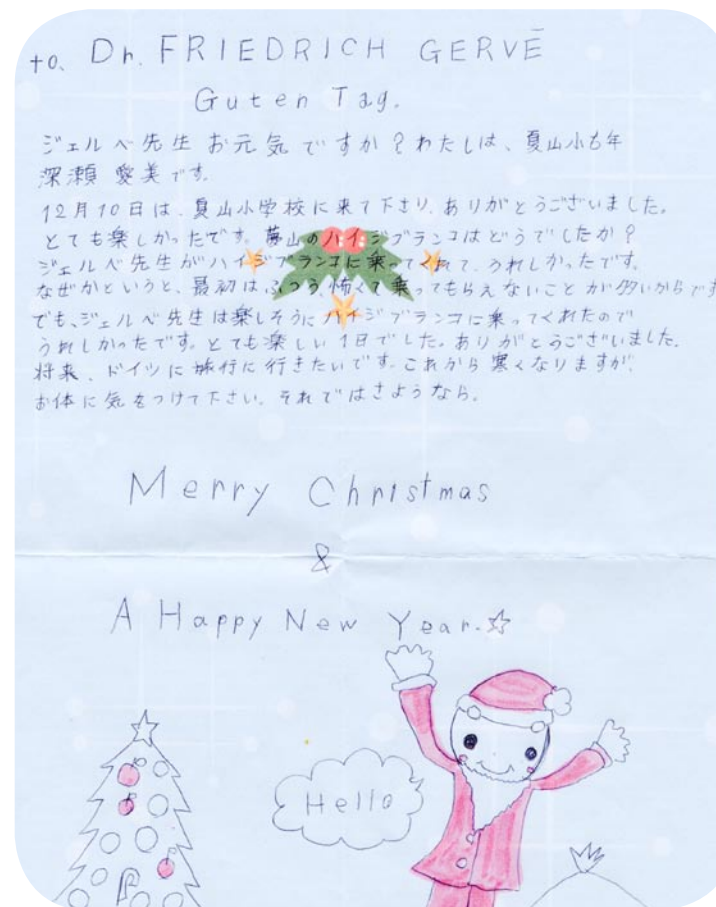 to. Dr. FRIEDRICH GERVĒ
Guten Tag.
ジェルベ先生 お元気ですか？わたしは、夏山小6年
深瀬 愛美です。
12月10日は、夏山小学校に来て下さり、ありがとうございました。
とても楽しかったです。夢山のハイジブランコはどうでしたか？
ジェルベ先生がハイジブランコに乗ってくれて、うれしかったです。
なぜかというと、最初はふつう、怖くて乗ってもらえないことが多いからです
でも、ジェルベ先生は楽しそうにハイジブランコに乗ってくれたので
うれしかったです。とても楽しい1日でした。ありがとうございました。
将来、ドイツに旅行に行きたいです。これから寒くなりますが、
お体に気をつけて下さい。それではさようなら。
Merry Christmas
&
A Happy New Year.☆
Hello